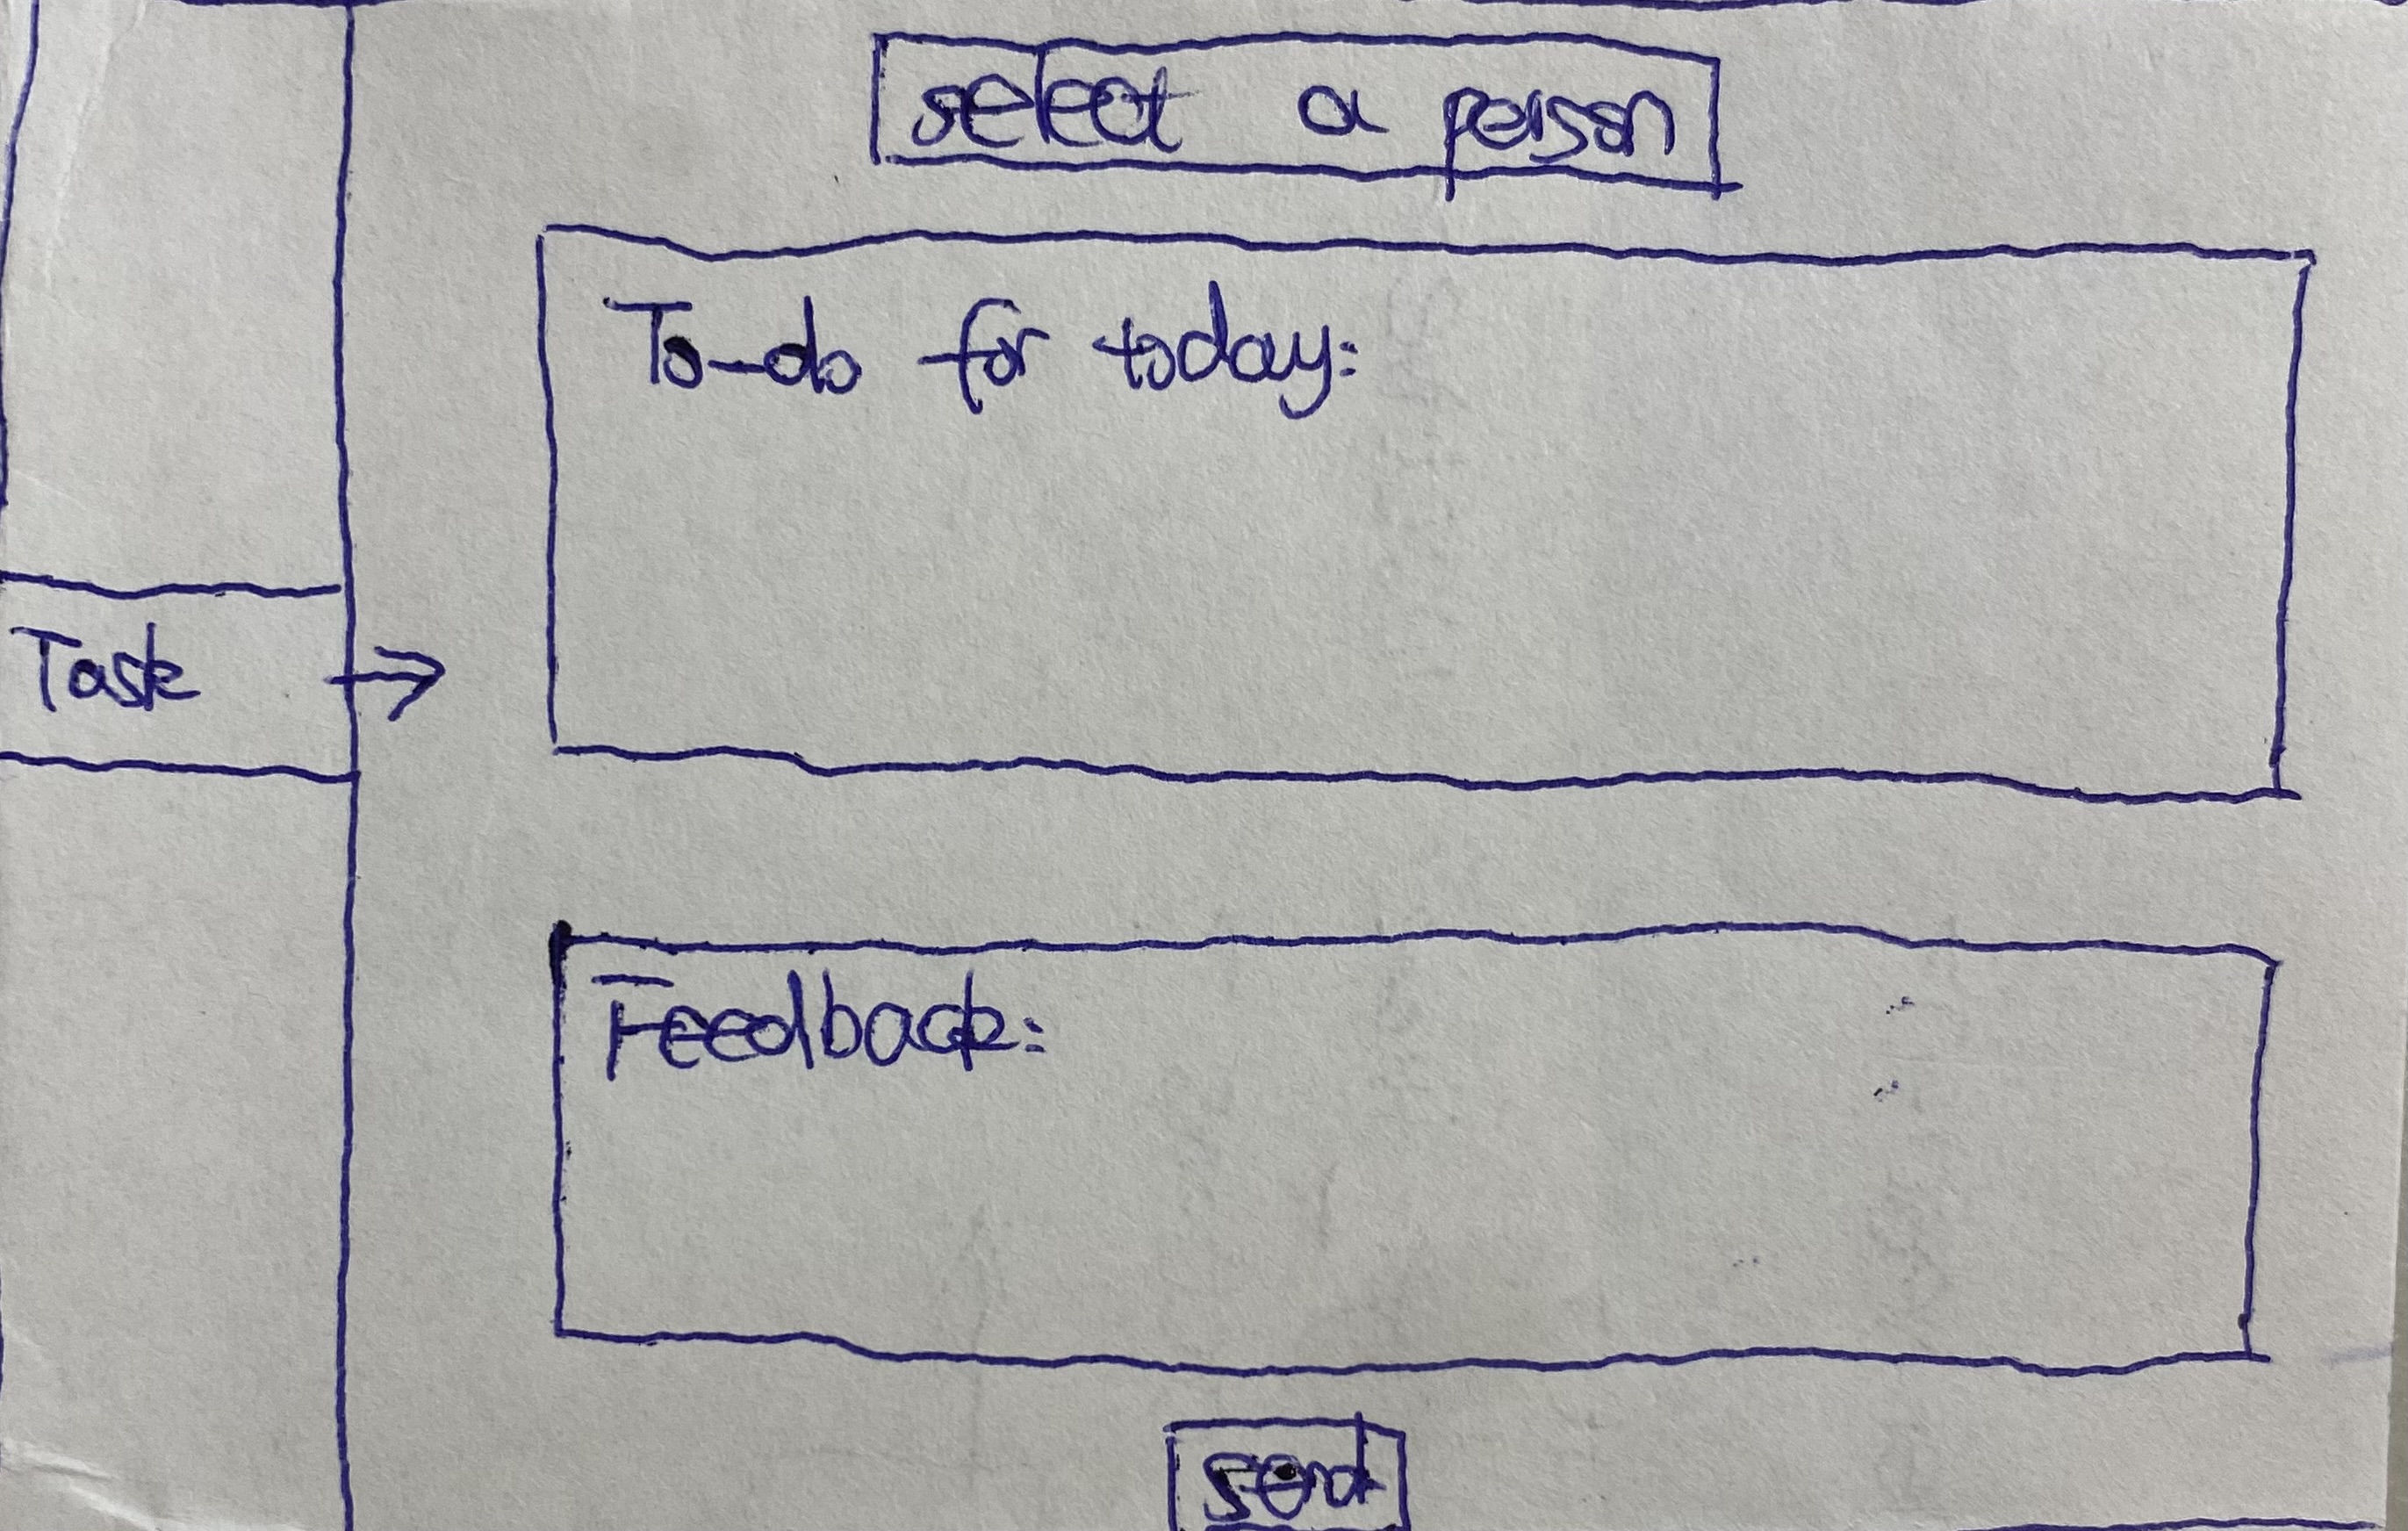 select a person
To-do for today:
Task →
Feedback:
send